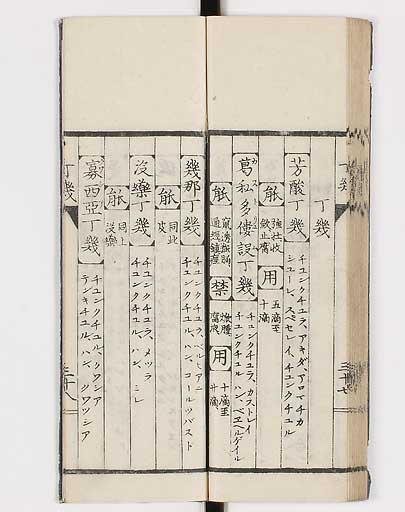 丁幾
芳酸丁幾
チユンクチユラ、アキダ、アロマチカ
シユーレ、スペセレイ、チユンクチユル
能
強壮收
斂止腐
用
五滴至
十滴
葛私多僂謨丁幾
チユンクチユラ、カストレイ
チユンクチユル、ハン、ベエヘルゲイル
能
通經鎮痙
禁
腐敗
用
十滴至
廿滴
幾那丁幾
チユンクチユラ、ペルヒアニ
チユンクチユル、ハン、コールツバスト
能
同此
皮
没藥丁幾
チユンクチユラ、メツラ
チユンクチユル、ハン、ミレ
能
同
没藥
寡西亞丁幾
チユンクチユル、クワシア
テンキチユル、ハン、クワツシア
丁幾
三十七
丁幾
三十八